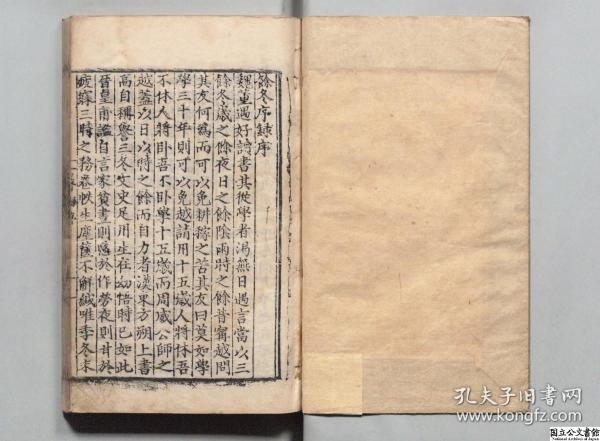 餘冬序錄序
魏董遇好讀書其從學者渴無日遇言當以三
餘冬歲之餘夜日之餘陰雨時之餘昔甯越問
其友何爲而可以免耕稼之苦其友曰莫如學
學三十年則可以免越請用十五歲人將休吾
不休人將卧吾不卧學十五歲而周威公師之
越蓋以日以時之餘而自力者漢東方朔上書
高自稱譽三冬文史足用生在幼悟時已如此
晉皇甫謐自言家貧晝則
於作勞夜則甘於
疲寐三時之務卷帙生塵篋不解緘唯季冬末
孔夫子旧书网
kongfz.com
国立公文書館
National Archives of Japan